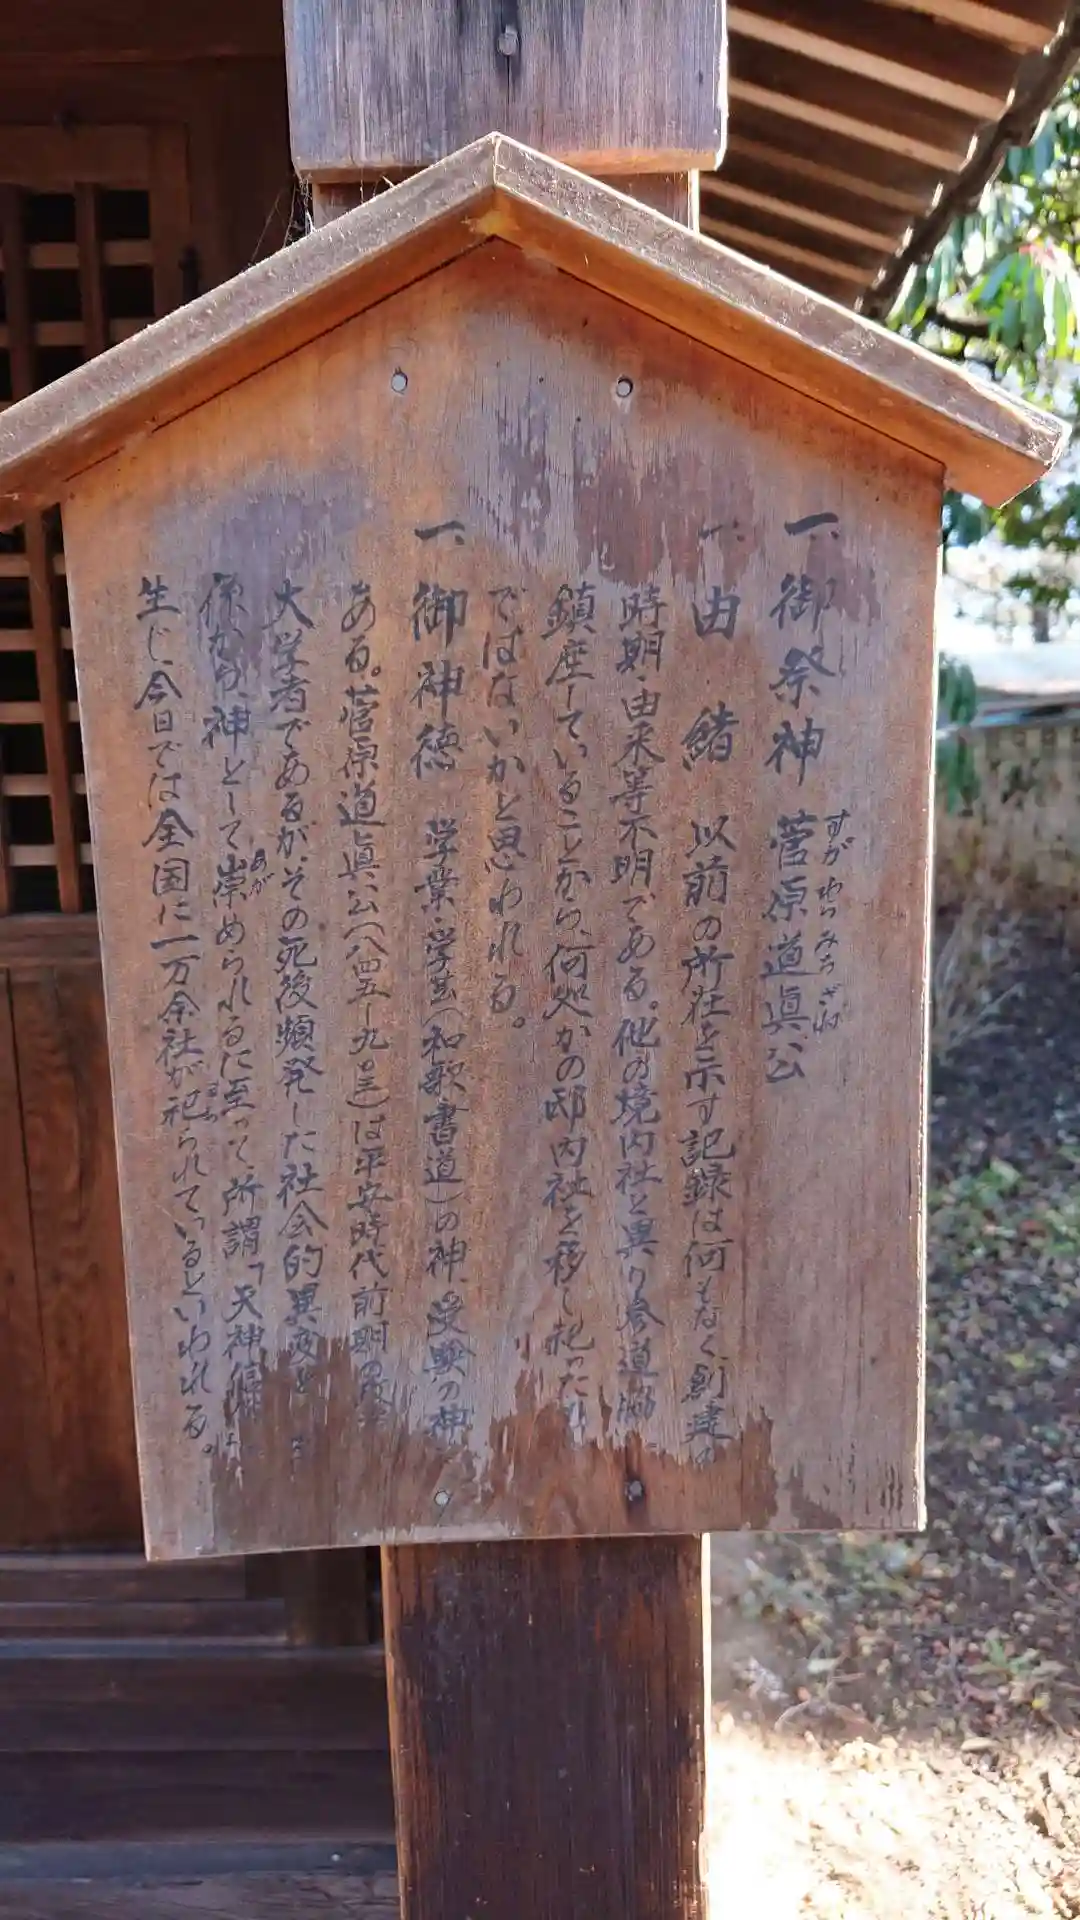 一、御祭神 菅原道眞公
すがわらみちざね
一、由緒 以前の所在を示す記録は何もなく創建の
時期・由来等不明である。他の境内社と異り参道脇
鎮座していることから、何処かの邸内社を移し祀った
ではないかと思われる。
一、御神徳 学業・学芸(和歌書道)の神、受験の神
ある。菅原道眞公(八四五〜九〇三)は平安時代前期の
大学者であるが、その死後頻発した社会的異変と
係から、神として崇められるに至って、所謂「天神信仰
あが
生じ、今日では全国に一万余社が祀られているといわれる。
まつ